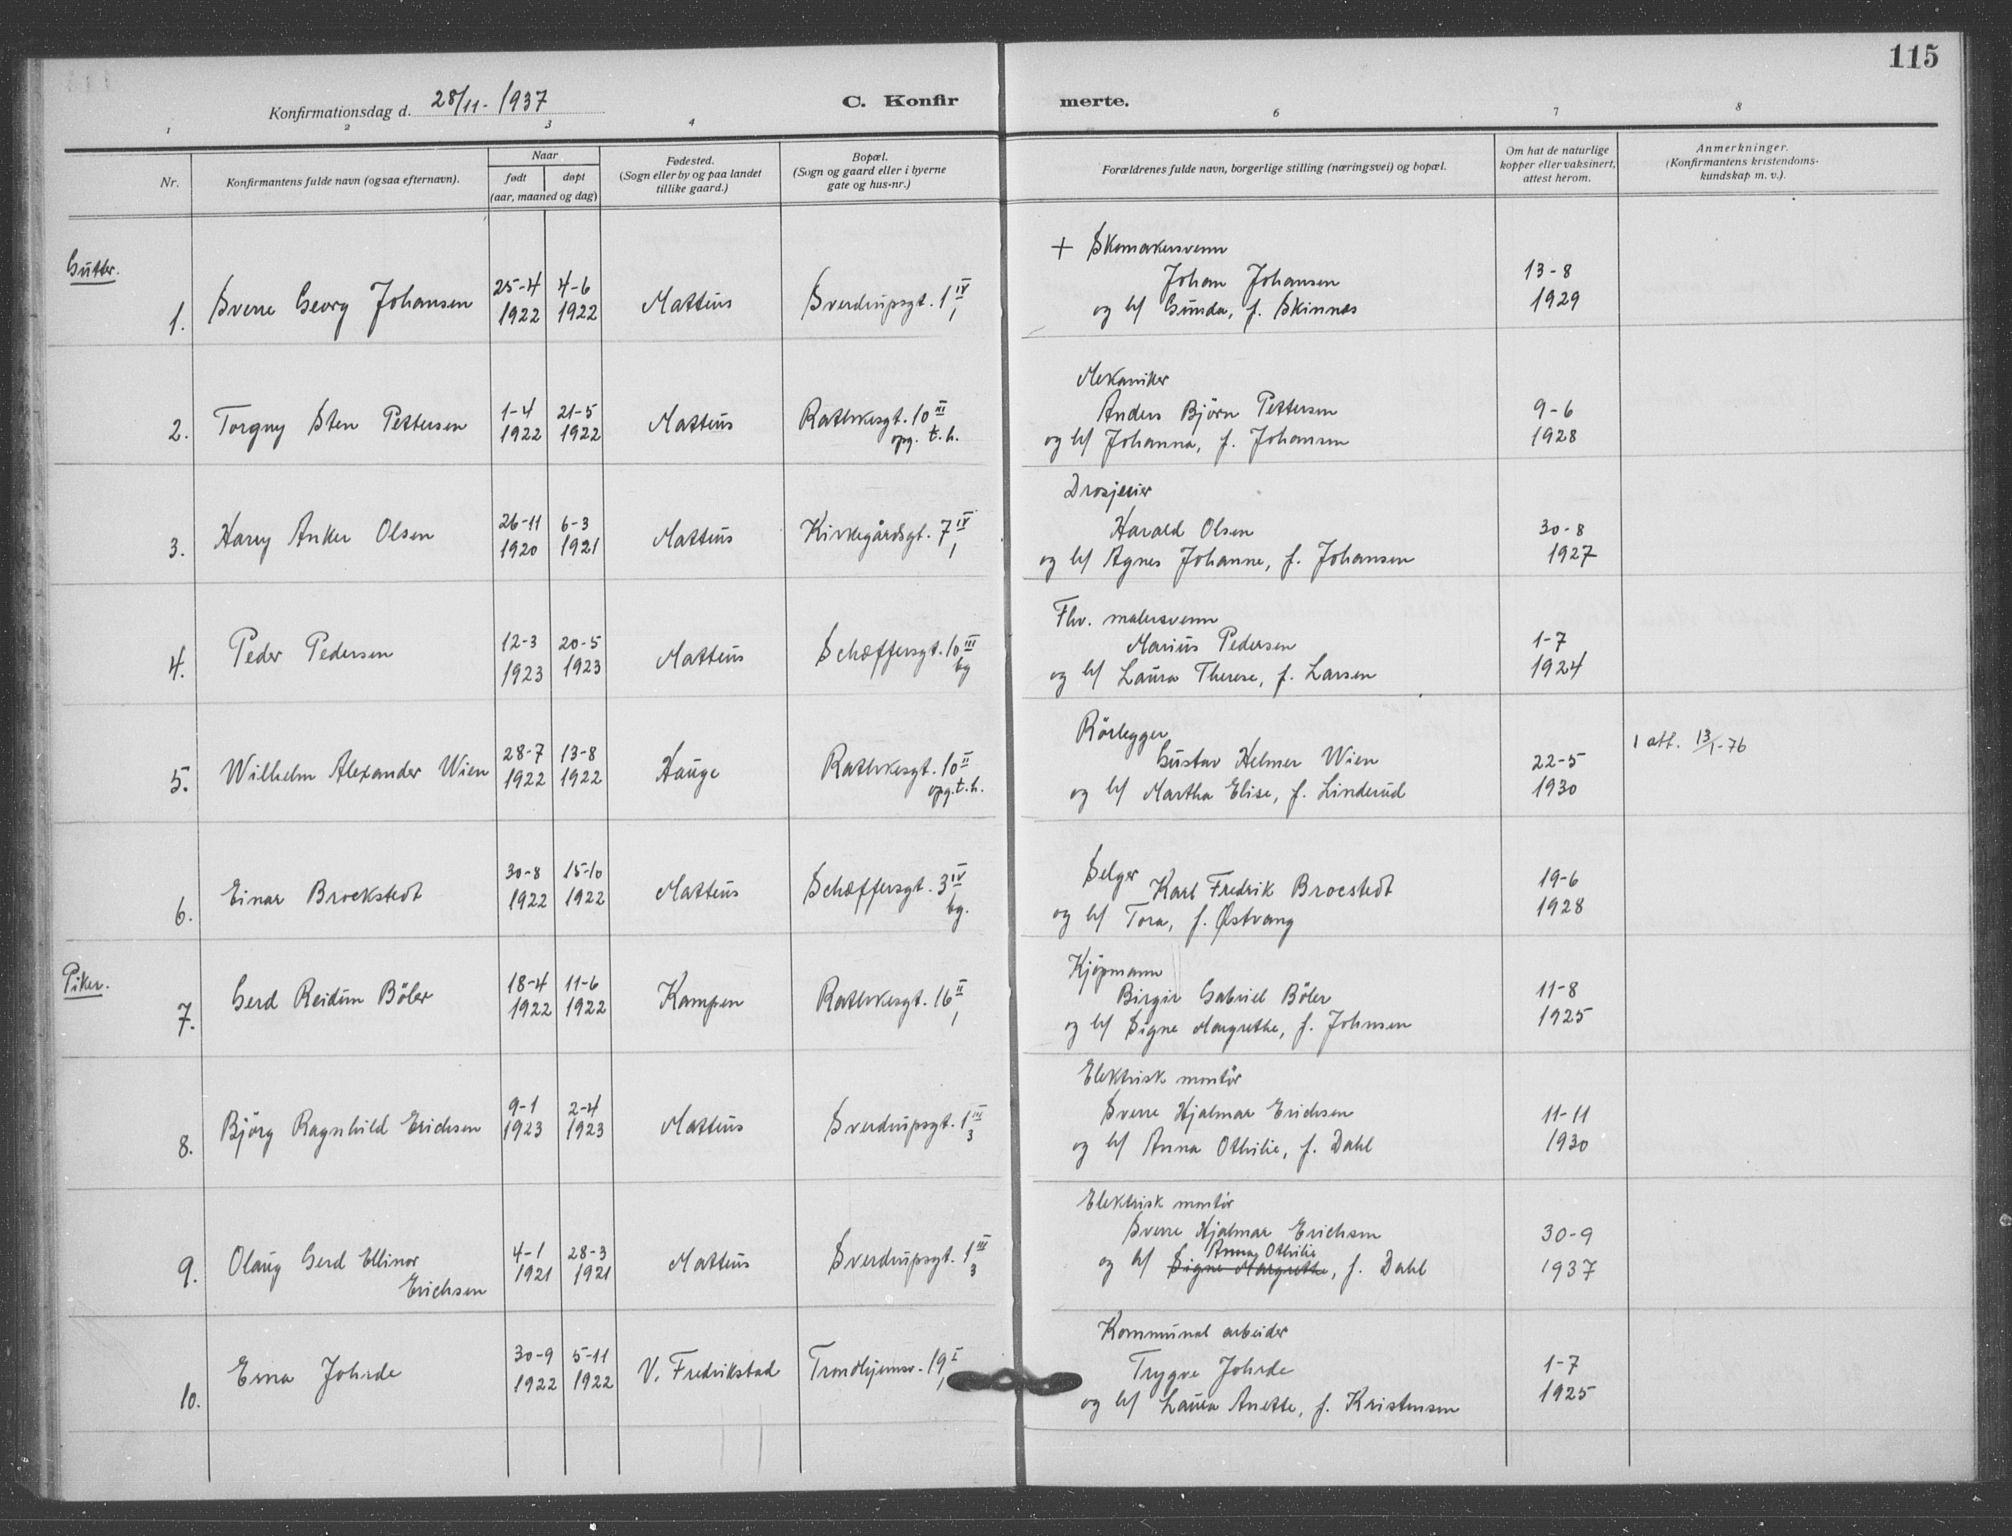 115
Konfirmationsdag d. 28/11. 1937
C. Konfir merte.
1 2 3 4 6 7 8
Nr.
Konfirmantens fulde navn (ogsaa efternavn).
Naar
født døpt
(aar, maaned og dag)
Fødested.
(Sogn eller by og paa landet
tillike gaard.)
Bopæl.
(Sogn og gaard eller i byerne
gate og hus-nr.)
Forældrenes fulde navn, borgerlige stilling (næringsvei) og bopæl.
Om hat de naturlige
kopper eller vaksinert,
attest herom.
Anmerkninger.
(Konfirmantens kristendoms-
kundskap m. v.).
Gutter.
1. Sverre Georg Johansen
25-4 4-6
1922 1922
Matteus
Sverdrupsgt. 1 IV
1
+ Skomakersvenn
Johan Johansen
og h/ Gunda, f. Skinnes
13-8
1929
2. Torgny Sten Pettersen
1-4 21-5
1922 1922
Matteus
Rathkesgt. 10 III
opg. t. h.
Mekaniker
Anders Björn Pettersen
og h/ Johanna, f. Johansen
9-6
1928
3. Harry Anker Olsen
26-11 6-3
1920 1921
Matteus
Kirkegårdsgt. 7 IV
1
Drosjeeier
Harald Olsen
og h/ Agnes Johanne, f. Johansen
30-8
1927
4. Peder Pedersen
12-3 20-5
1923 1923
Matteus
Schæffersgt. 10 III
bg
Fhv. malersvenn
Marius Pedersen
og h/ Laura Therese, f. Larsen
1-7
1924
5. Wilhelm Alexander Wien
28-7 13-8
1922 1922
Hauge
Rathkesgt. 10 II
opg. t. h.
Rörlegger
Gustav Helmer Wien
og h/ Martha Elise, f. Linderud
22-5
1930
1 att. 13/1-76
6. Einar Brockstedt
30-8 15-10
1922 1922
Matteus
Schæffersgt. 3 IV
bg.
Selger
Karl Fredrik Brocstedt
og h/ Tora, f. Østvang
19-6
1928
Piker.
7. Gerd Reidun Böler
18-4 11-6
1922 1922
Kampen
Rathkesgt. 16 II
1
Kjöpmann
Birger Gabriel Böler
og h/ Signe Margrethe, f. Johnsen
11-8
1925
8. Björg Ragnhild Erichsen
9-1 2-4
1923 1923
Matteus
Sverdrupsgt. 1 III
3
Elektrisk montör
Sverre Hjalmar Erichsen
og h/ Anna Othilie, f. Dahl
11-11
1930
9. Olaug Gerd Ellinor
Erichsen
4-1 28-3
1921 1921
Matteus
Sverdrupsgt. 1 III
3
Elektrisk montör
Sverre Hjalmar Erichsen
Anna Othilie
og h/ Signe Margrethe, f. Dahl
30-9
1937
10. Erna Johrde
30-9 5-11
1922 1922
V. Fredrikstad
Trondhjemsv. 19 I
1
Kommunal arbeider
Trygve Johrde
og h/ Laura Anette, f. Kristensen
1-7
1925